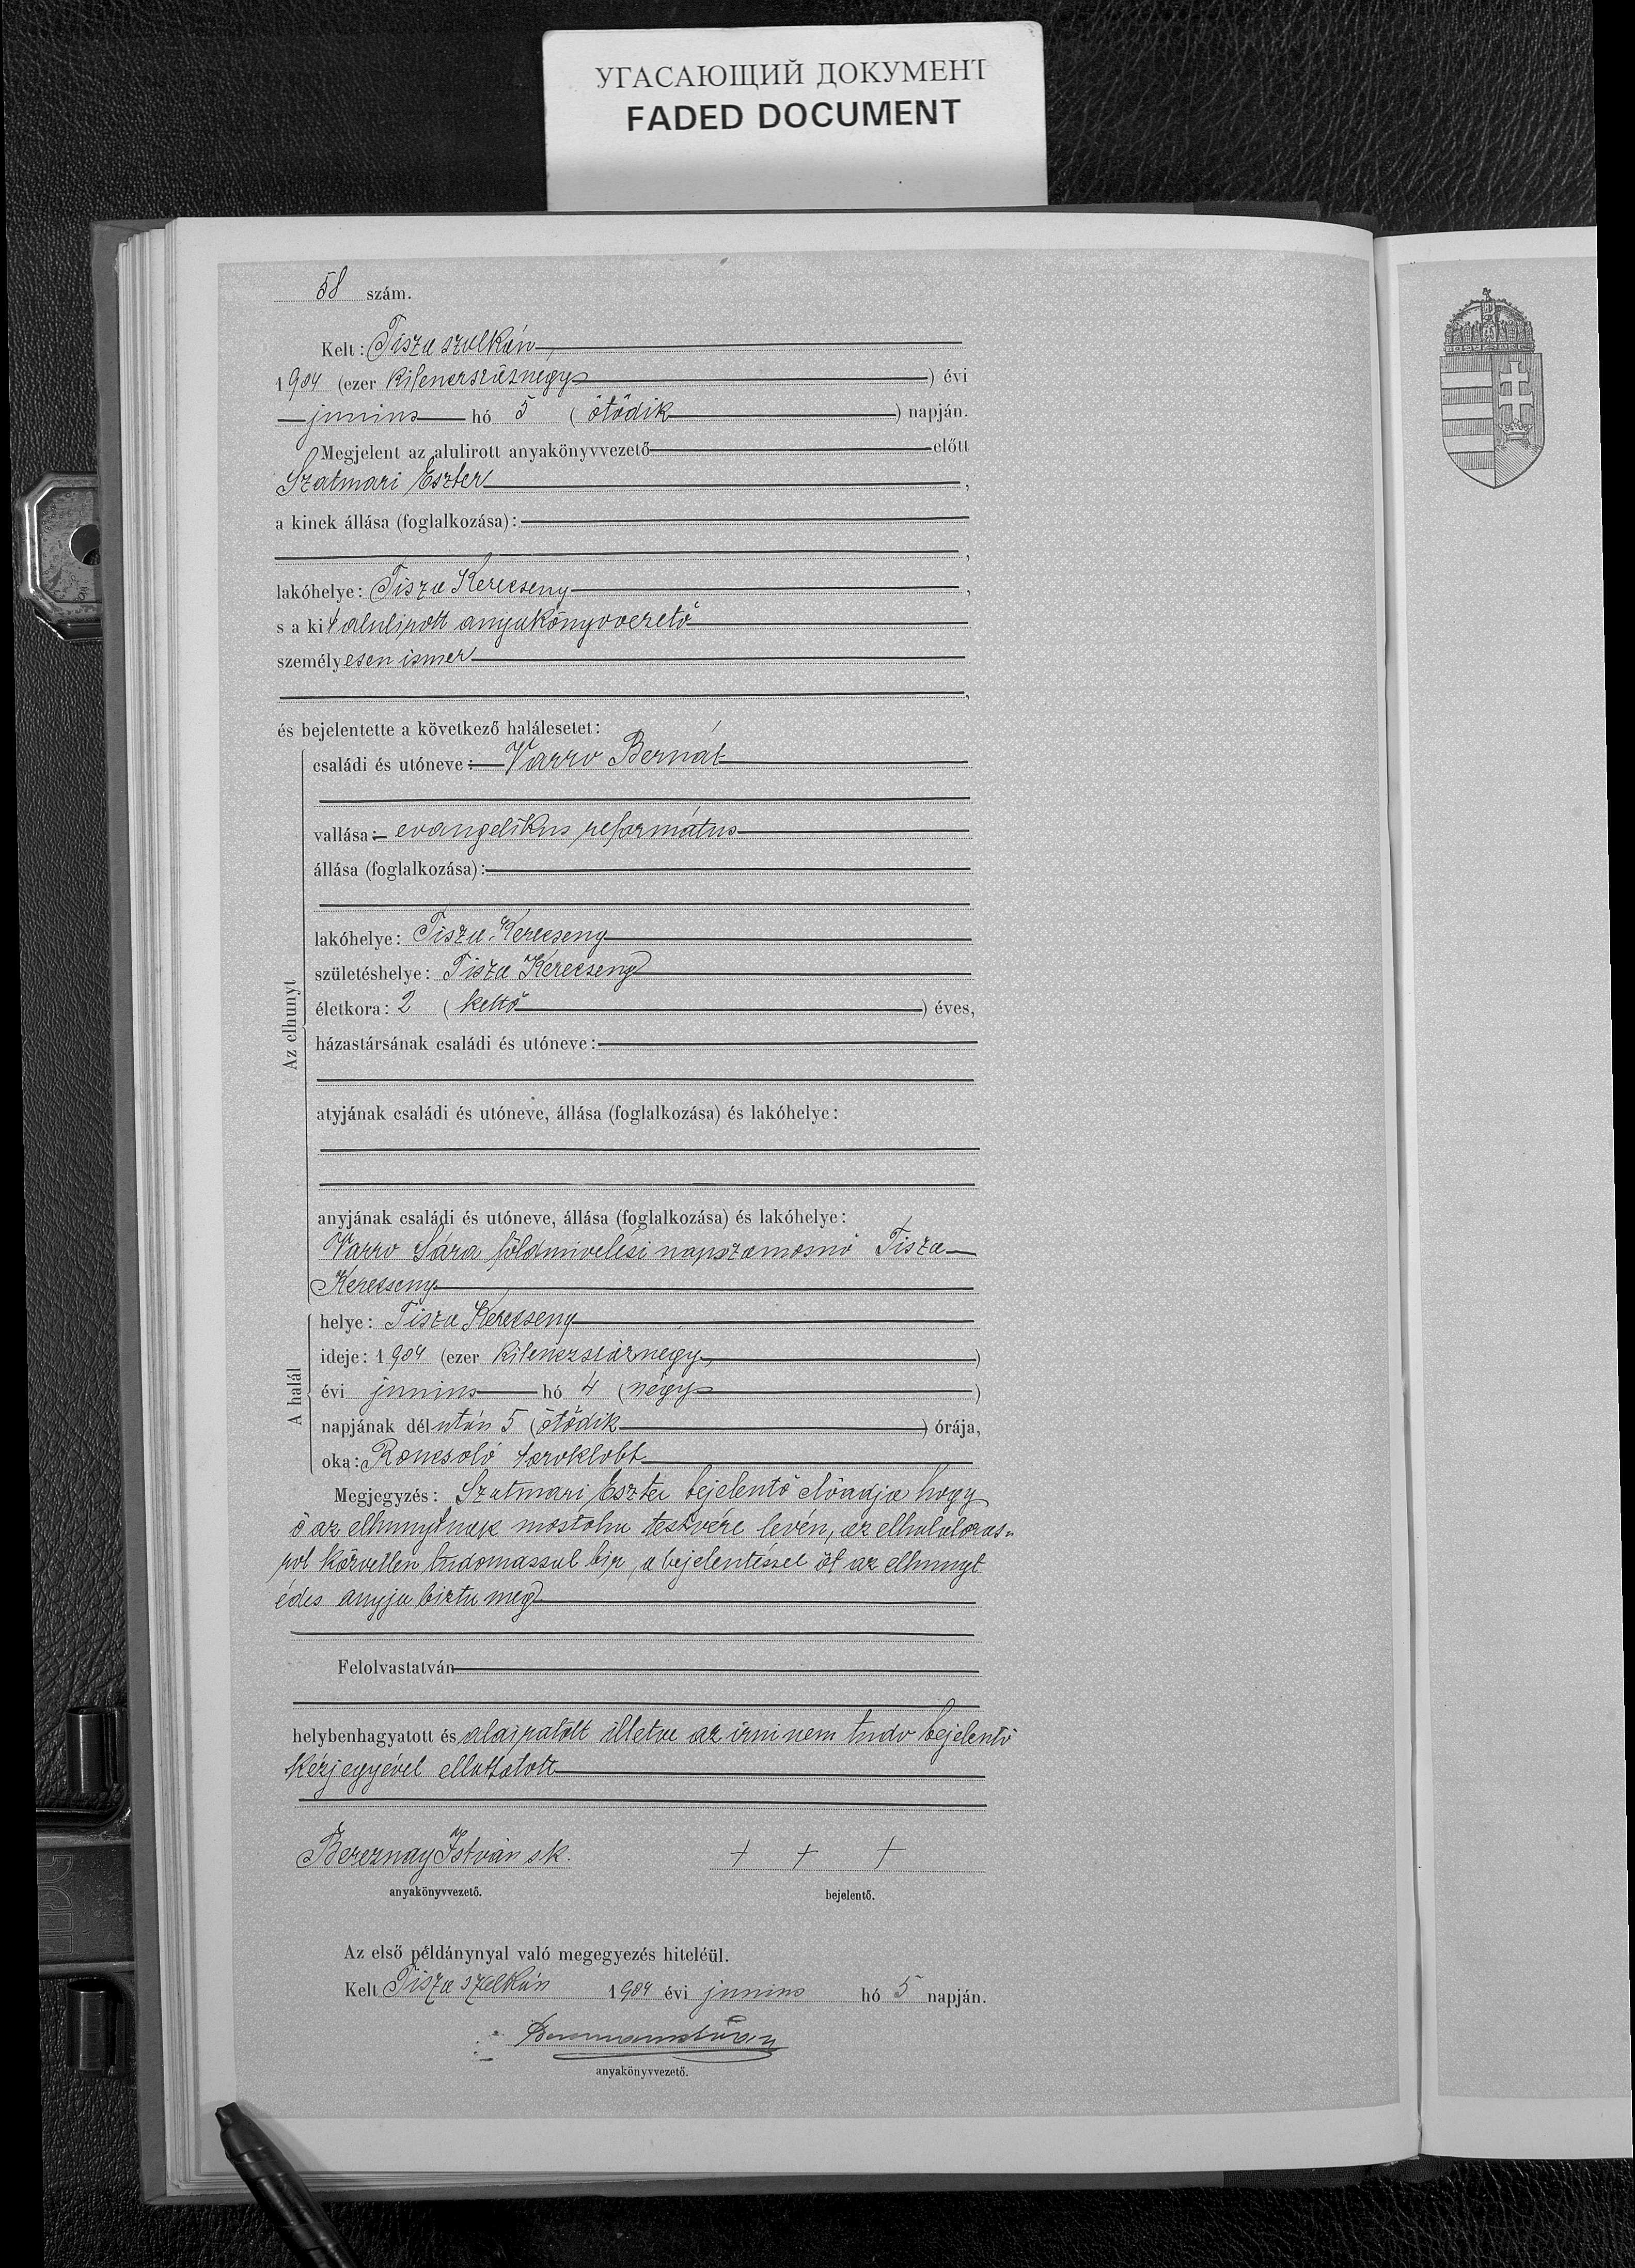 УГАСАЮЩИЙ ДОКУМЕНТ
FADED DOCUMENT
58 szám.
Kelt: Tisza szalkán,
1904 (ezer kilenczszáznegy) évi
junius hó 5 (ötödik) napján.
Megjelent az alulirott anyakönyvvezető előtt
Szatmari Eszter,
a kinek állása (foglalkozása):
,
lakóhelye: Tisza Kerecseny,
s a kit alulirott anyakönyvvezető
személyesen ismer
,
és bejelentette a következő halálesetet:
Az elhunyt
családi és utóneve: Varro Bernát
vallása: evangelikus református
állása (foglalkozása):
lakóhelye: Tisza Kerecseny
születéshelye: Tisza Kerecseny
életkora: 2 (kettő) éves,
házastársának családi és utóneve:
atyjának családi és utóneve, állása (foglalkozása) és lakóhelye:
anyjának családi és utóneve, állása (foglalkozása) és lakóhelye:
Varro Sára földmivelési napszamosnő Tisza
Kerecseny
A halál
helye: Tisza Kerecseny
ideje: 1904 (ezer kilenczszáznegy)
évi junius hó 4 (négy)
napjának délután 5 (ötödik) órája,
oka: Roncsoló toroklobt
Megjegyzés: Szatmari Eszter bejelentő előadja hogy
ő az elhunytnak mostoha testvére levén, az elhalálozás-
rol közvetlen tudomassal bir, a bejelentéssel öt az elhunyt
édes anyja bizta meg
Felolvastatván
helybenhagyatott és alairatott illetve az irni nem tudo bejelentő
kézjegyével ellattatott
Bereznay István sk. + + +
anyakönyvvezető. bejelentő.
Az első példánynyal való megegyezés hiteléül.
Kelt Tisza szalkán 1904 évi junius hó 5 napján.
anyakönyvvezető.